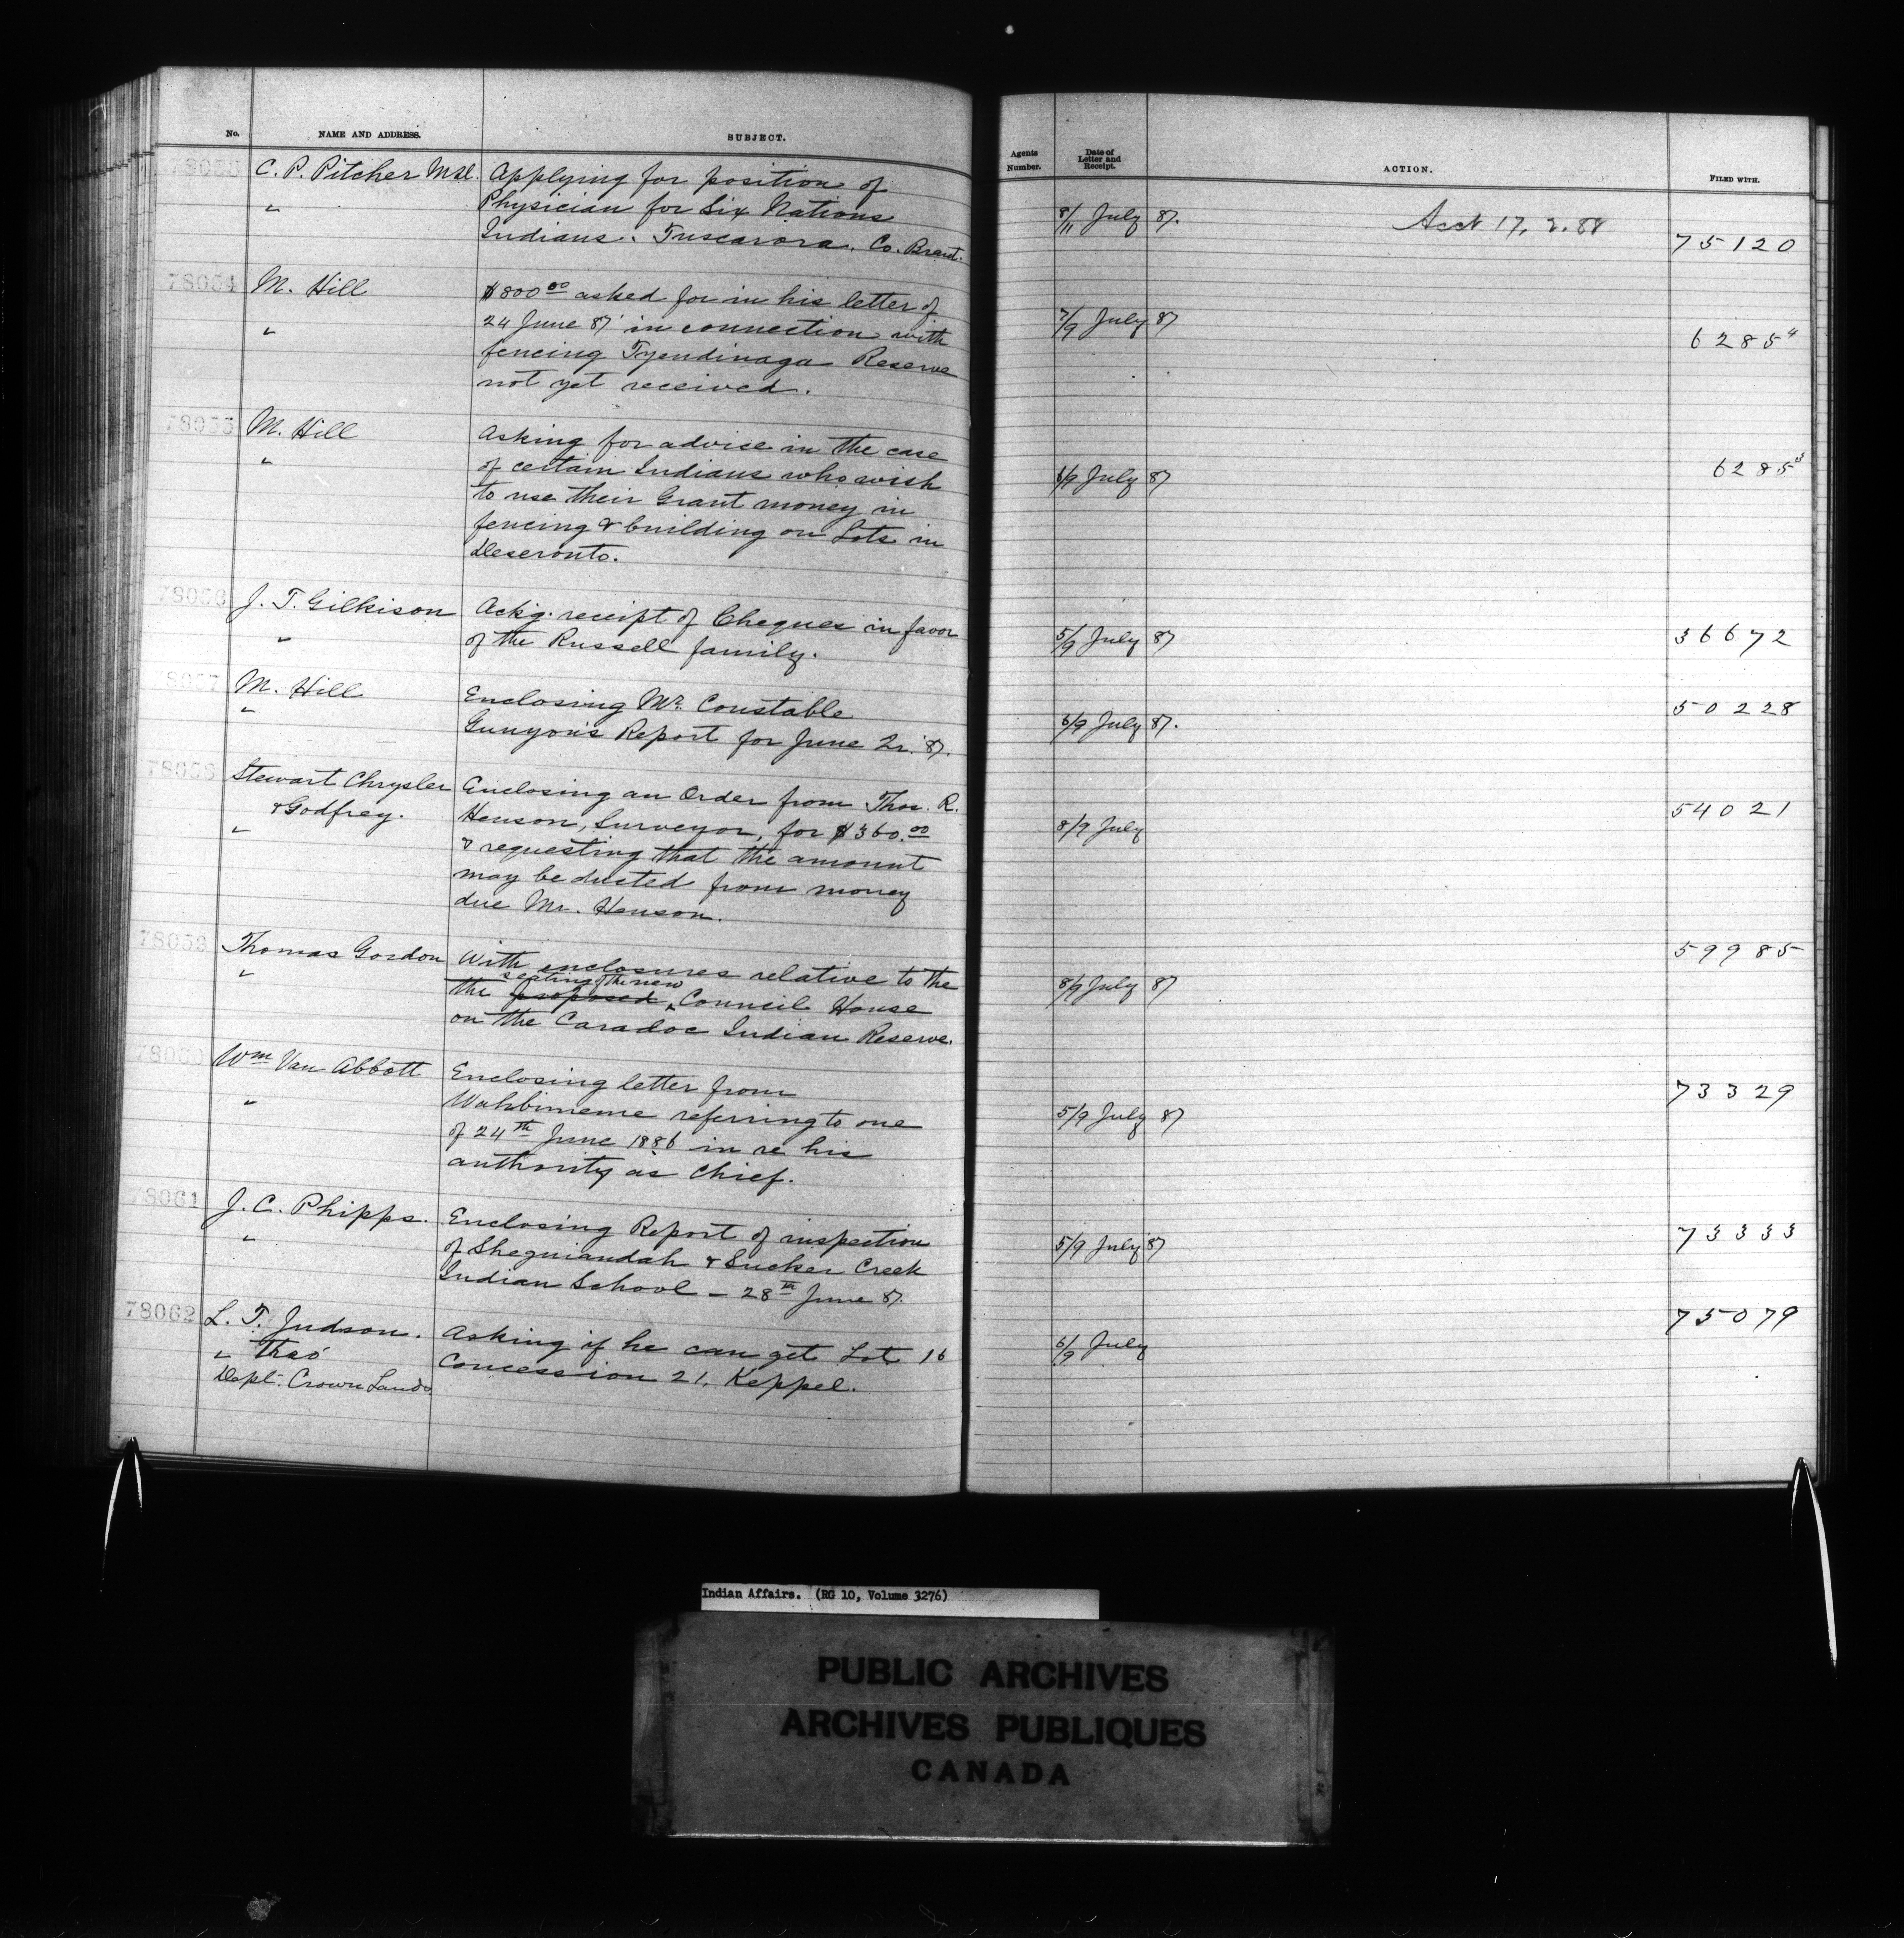 No. NAME AND ADDRESS. SUBJECT. Agents Number. Date of Letter and Receipt. ACTION. FILED WITH.
78053 C. P. Pitcher Applying for position of
" Physician for Six Nations 8/11 July 87. 17. 2. 88
Indians. Tuscarora. Co. Brant. 75120
78054 M. Hill $800 00 asked for in his letter of
" 24 June 87 in connection with 7/9 July 87
fencing Tyendinaga Reserve 6285 4
not yet received.
78055 M. Hill Asking for advice in the case
" of certain Indians who wish 6/9 July 87 6285 3
to use their Grant money in
fencing & building on Lots in
Deseronto.
78056 J. T. Gilkison Ackg. receipt of Cheques in favor
" of the Russell family. 5/9 July 87 36672
78057 M. Hill Enclosing Mr. Constable
" Gunyon's Report for June 87. 6/9 July 87. 50228
78058 Stewart Chrysler Enclosing an Order from Thos. R.
& Godfrey. Henson, Surveyor, for $360.00 8/9 July 54021
" & requesting that the amount
may be ducted from money
due Mr. Henson.
78059 Thomas Gordon With enclosures relative to the 59985
seating of the new
" the proposed Council House 8/9 July 87
on the Caradoc Indian Reserve.
78060 Wm Van Abbott Enclosing letter from 73329
" Wahbimeme referring to one 5/9 July 87
of 24th June 1886 in re his
authority as Chief.
78061 J. C. Phipps. Enclosing Report of inspection 73333
" of Sheguiandah & Sucker Creek 5/9 July 87
Indian School – 28th June 87.
78062 L. T. Judson. Asking if he can get Lot 16 75079
" Thro' Concession 21, Keppel. 6/9 July
Dept. Crown Lands
Indian Affairs. (RG 10, Volume 3276)
PUBLIC ARCHIVES
ARCHIVES PUBLIQUES
CANADA